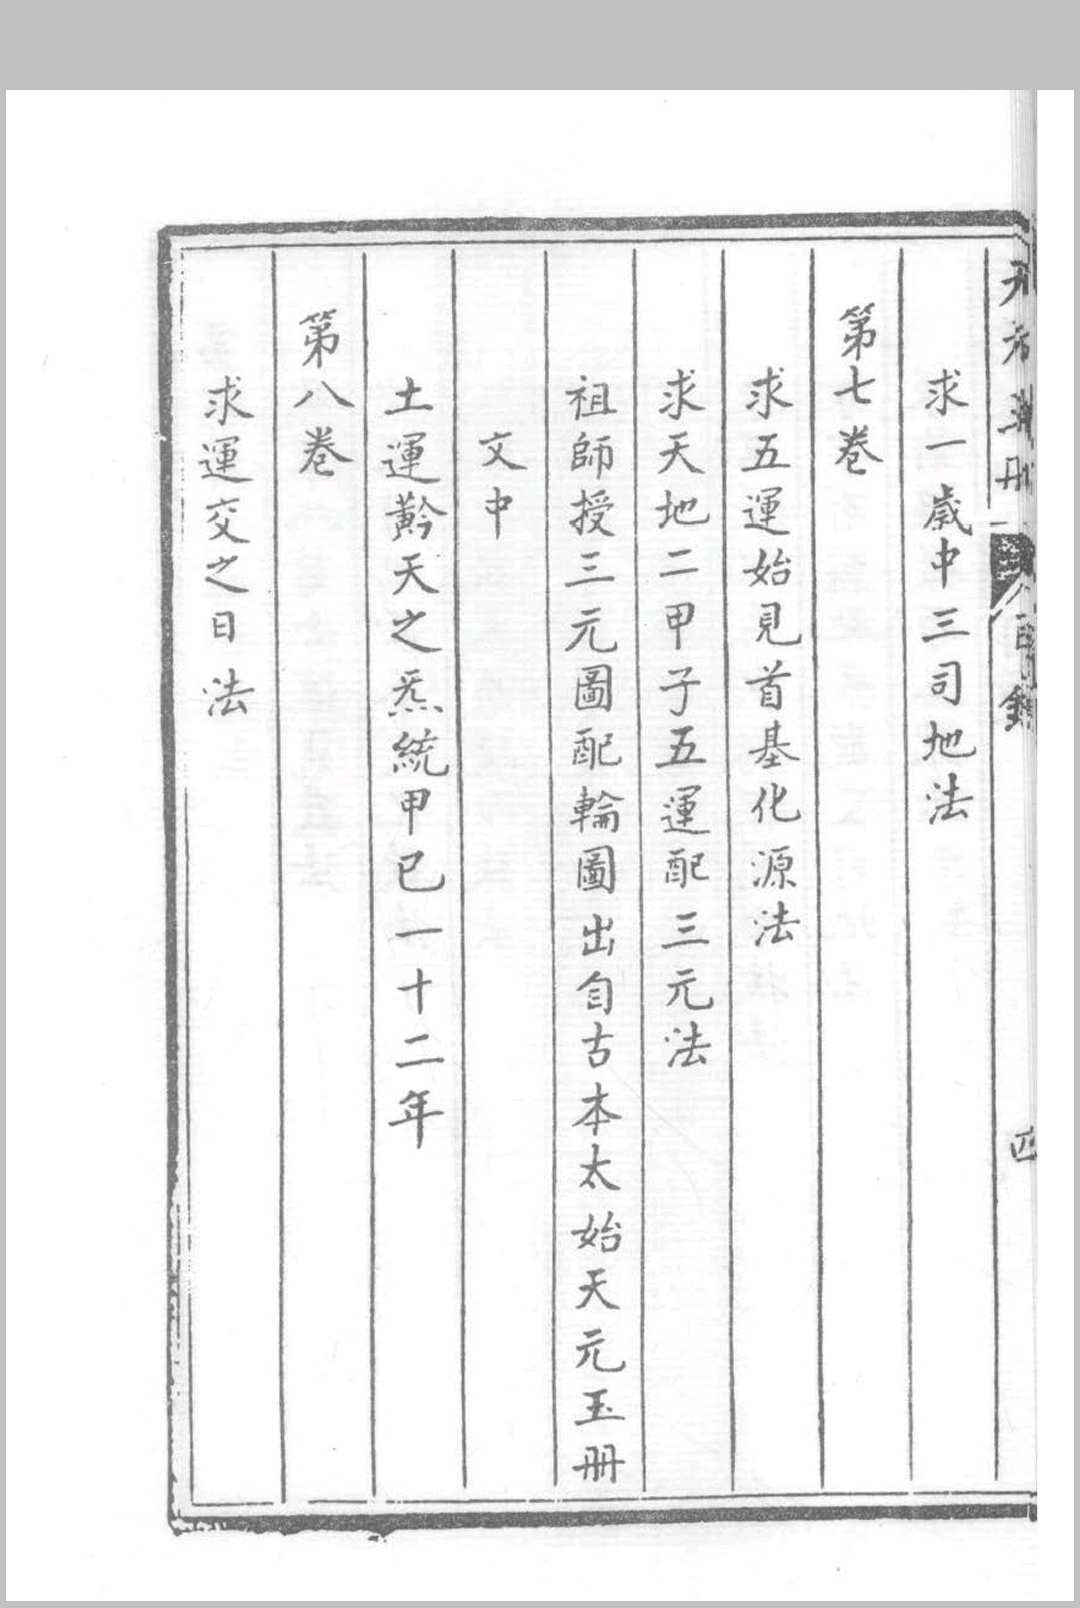 天元玉册
目錄
四
求一歲中三司地法
第七卷
求五運始見首基化源法
求天地二甲子五運配三元法
祖師授三元圖配輪圖出自古本太始天元玉册
文中
土運黅天之炁統甲已一十二年
第八卷
求運交之日法